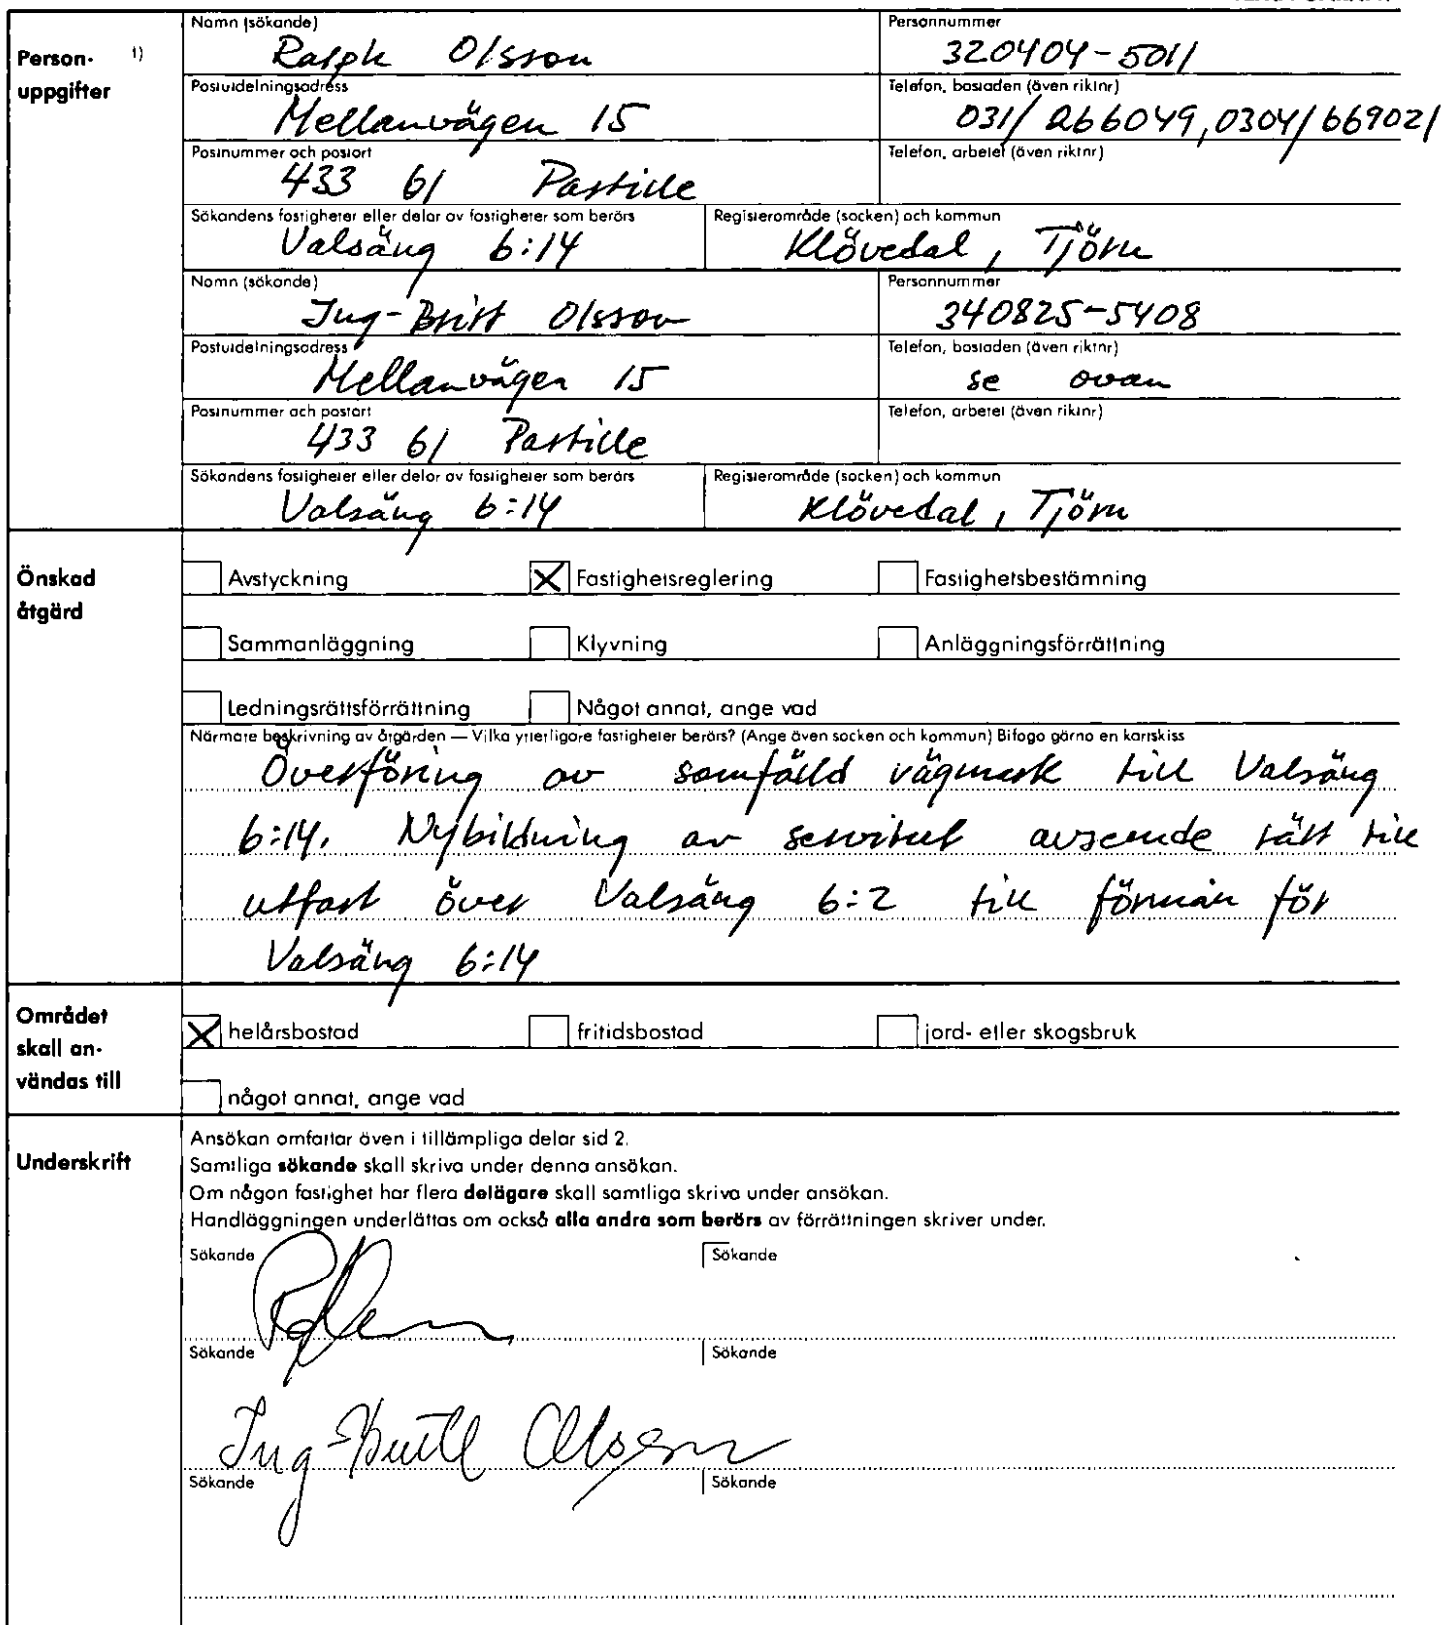 Person- 1) Namn (sökande) Ralph Olsson Personnummer 320404-5011
uppgifter Postutdelningsadress Mellanvägen 15 Telefon, bostaden (även riktnr) 031/266049, 0304/669021
Postnummer och postort 433 61 Partille Telefon, arbetet (även riktnr)
Sökandens fastigheter eller delar av fastigheter som berörs Valsäng 6:14 Registerområde (socken) och kommun Klövedal, Tjörn
Namn (sökande) Ing-Britt Olsson Personnummer 340825-5408
Postutdelningsadress Mellanvägen 15 Telefon, bostaden (även riktnr) se ovan
Postnummer och postort 433 61 Partille Telefon, arbetet (även riktnr)
Sökandens fastigheter eller delar av fastigheter som berörs Valsäng 6:14 Registerområde (socken) och kommun Klövedal, Tjörn
Önskad åtgärd
Avstyckning X Fastighetsreglering Fastighetsbestämning
Sammanläggning Klyvning Anläggningsförrättning
Ledningsrättsförrättning Något annat, ange vad
Närmare beskrivning av åtgärden — Vilka ytterligare fastigheter berörs? (Ange även socken och kommun) Bifoga gärna en kartskiss
Överföring av samfälld vägmark till Valsäng
6:14. Nybildning av servitut avseende rätt till
utfart över Valsäng 6:2 till förmån för
Valsäng 6:14
Området skall an- vändas till
X helårsbostad fritidsbostad jord- eller skogsbruk
något annat, ange vad
Underskrift
Ansökan omfattar även i tillämpliga delar sid 2.
Samtliga sökande skall skriva under denna ansökan.
Om någon fastighet har flera delägare skall samtliga skriva under ansökan.
Handläggningen underlättas om också alla andra som berörs av förrättningen skriver under.
Sökande Sökande
Sökande Sökande
Ing-Britt Olsson
Sökande Sökande